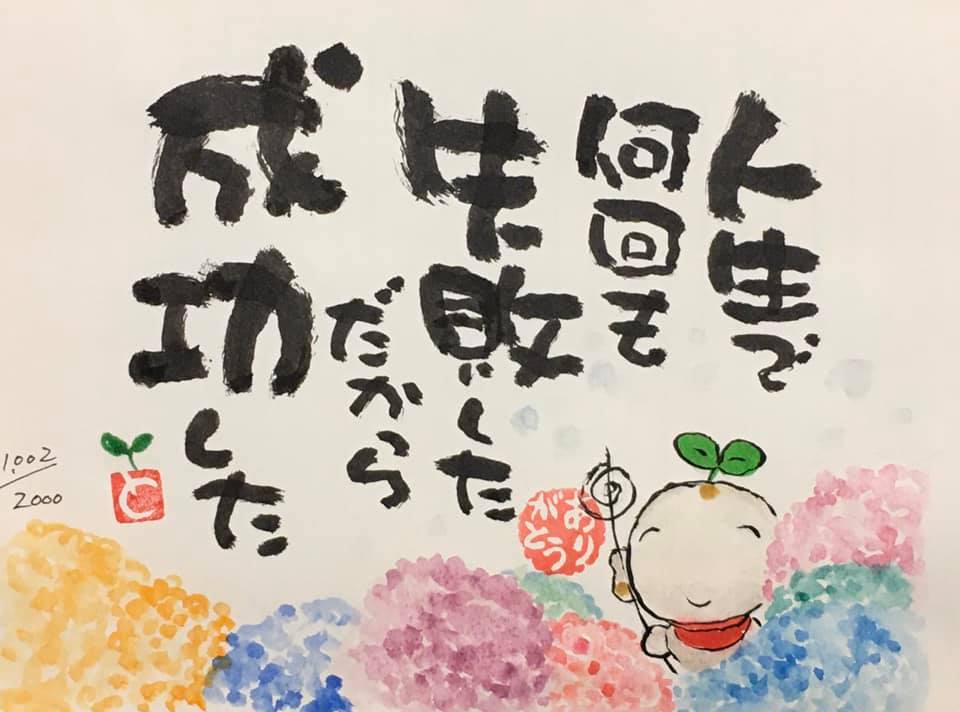 人生で
何回も
失敗した
だから
成功した
ありがとう
と
1,002/2000